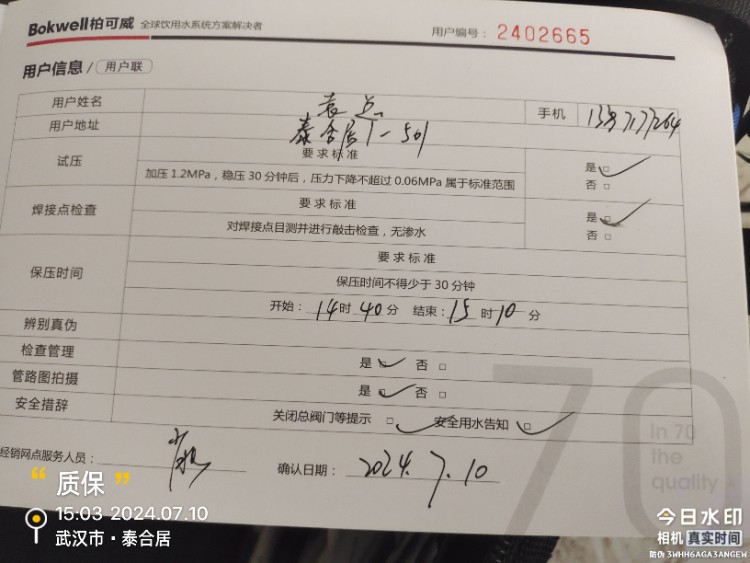 Bokwell柏可威 全球饮用水系统方案解决者
用户编号: 2402665
用户信息 / 用户联
用户姓名 袁 手机
用户地址 泰合居1-501
试压 要求标准 是
加压1.2MPa，稳压30分钟后，压力下降不超过0.06MPa属于标准范围 否
焊接点检查 要求标准 是
对焊接点目测并进行敲击检查，无渗水 否
保压时间 要求标准
保压时间不得少于30分钟
开始: 14时40分 结束: 15时10分
辨别真伪
检查管理 是 否
管路图拍摄 是 否
安全措辞 关闭总阀门等提示 安全用水告知
经销网点服务人员:
确认日期: 2024.7.10
70
In 70
the
quality
“质保”
15:03 2024.07.10
武汉市·泰合居
今日水印
相机 真实时间
防伪 3WHH6AGA3ANGEW